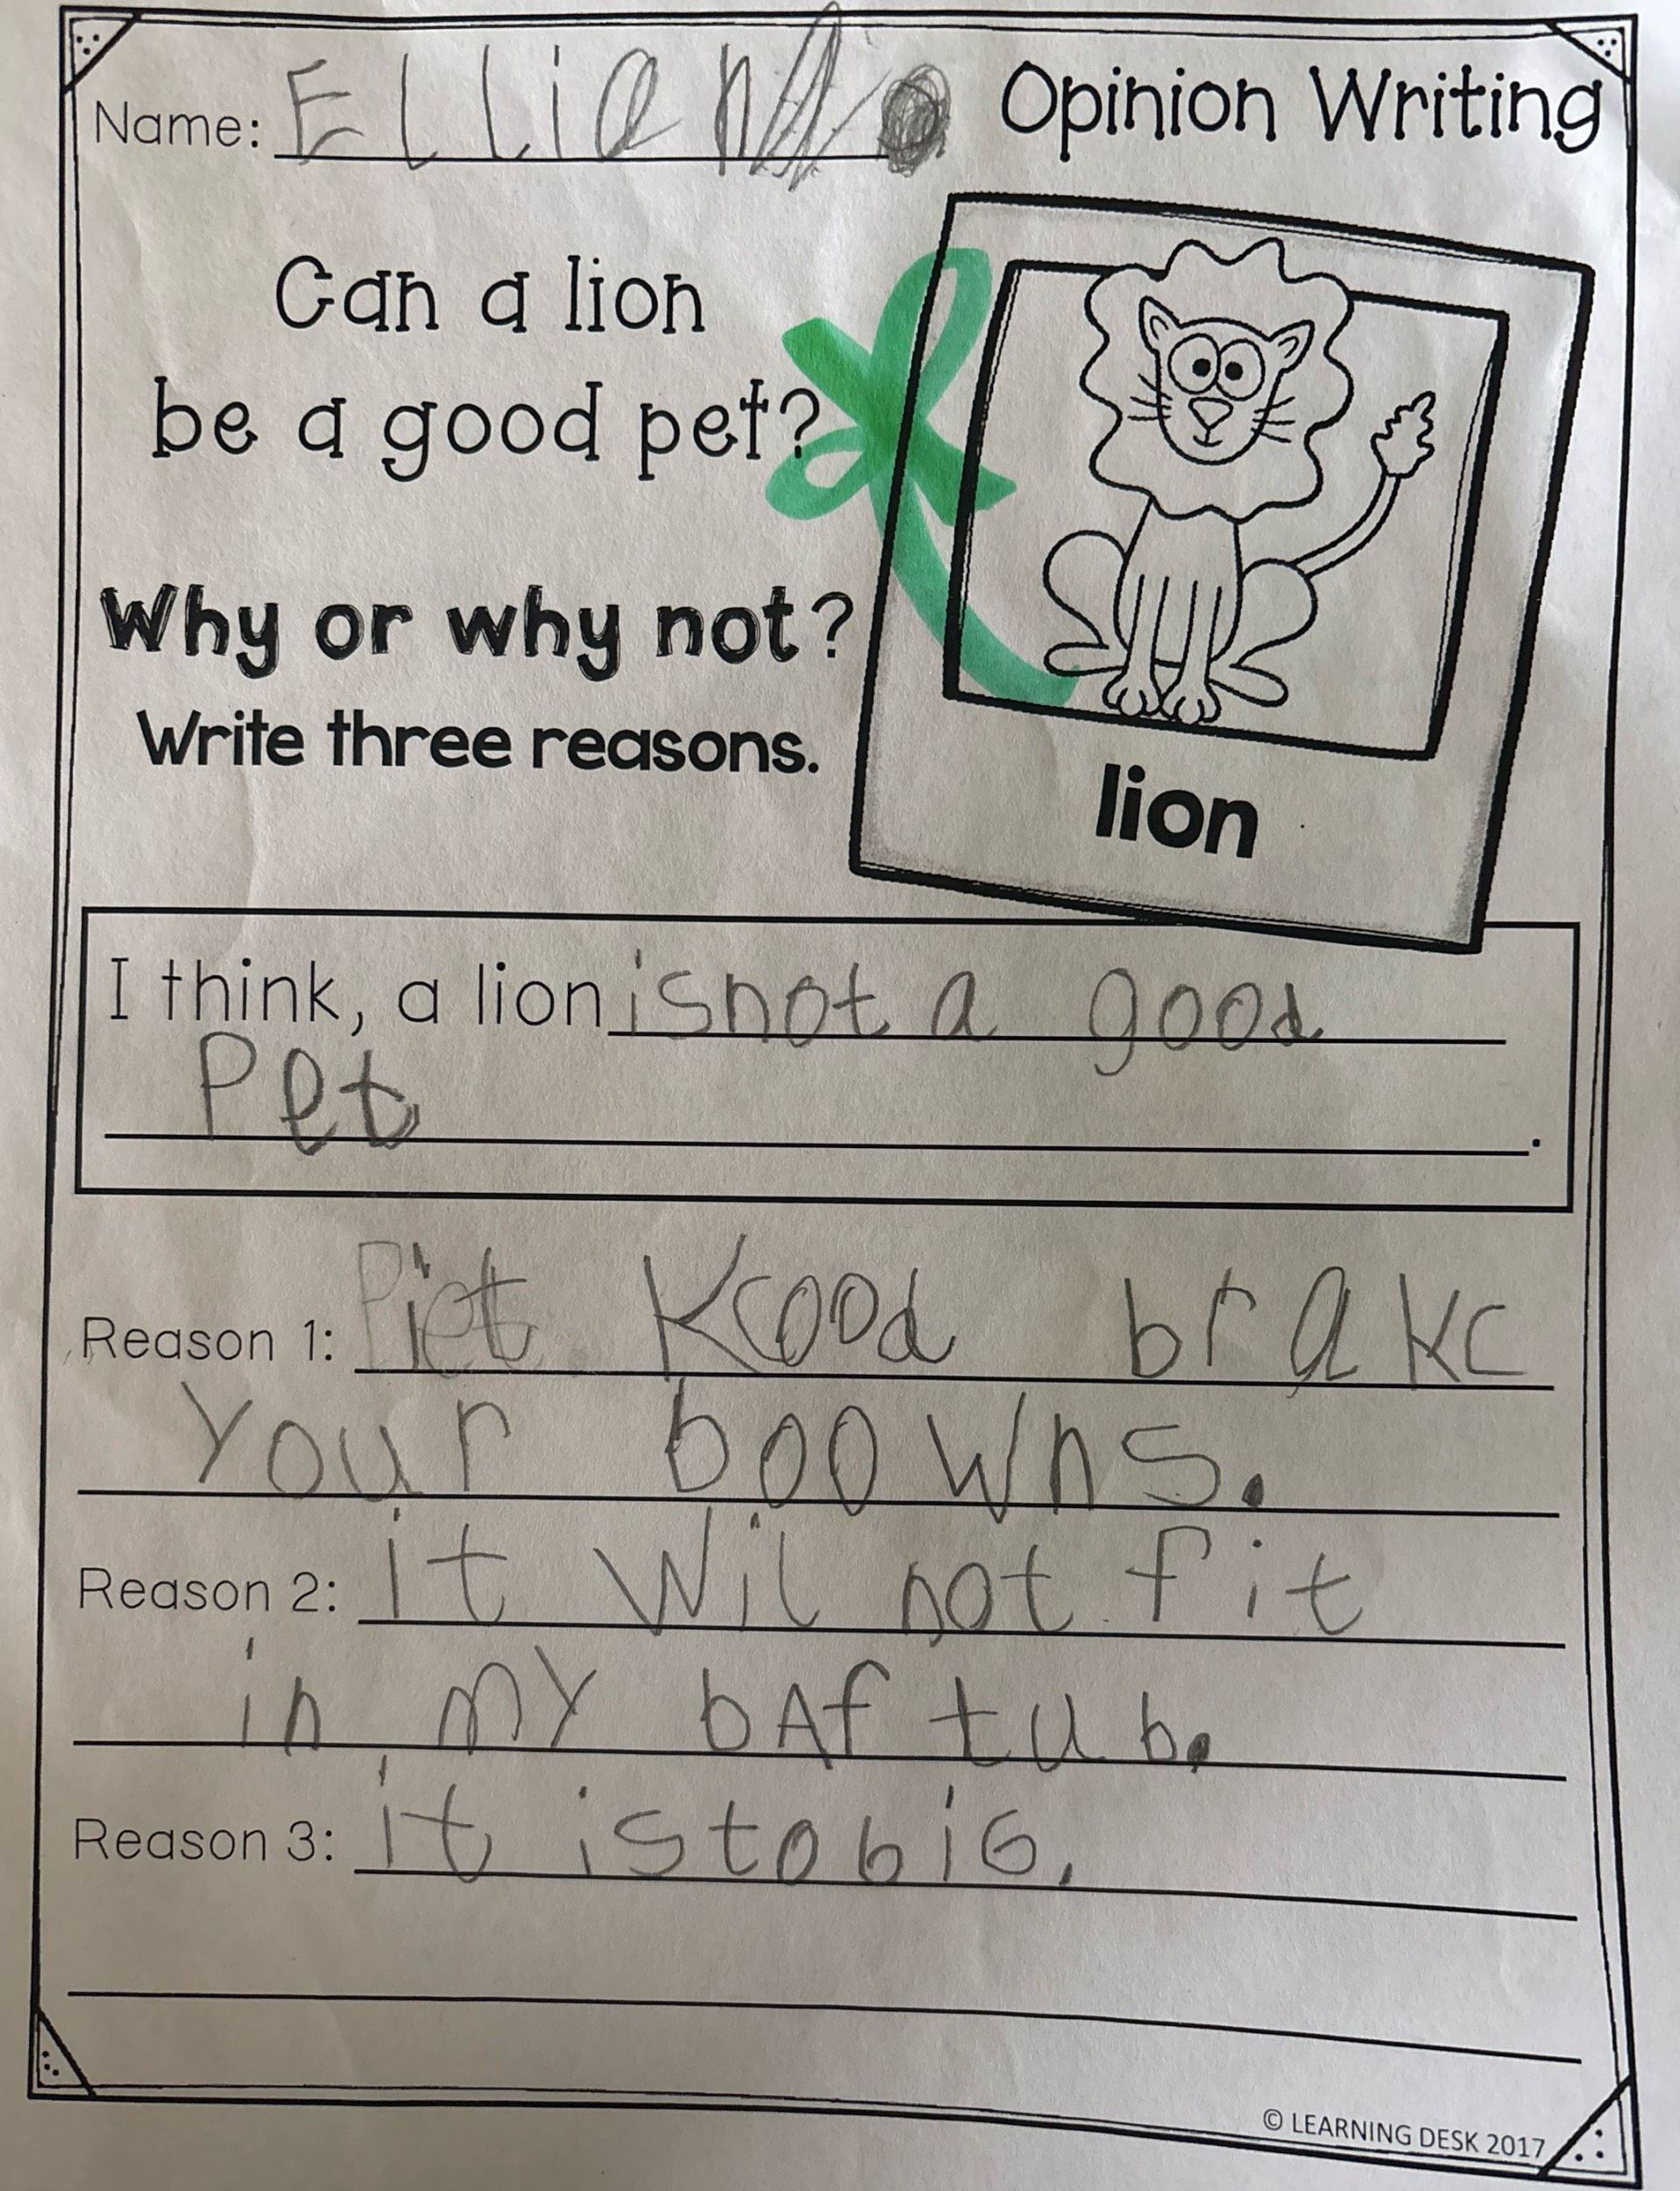 Name: Elliana Opinion Writing
Can a lion
be a good pet?
Why or why not?
Write three reasons.
lion
I think, a lion isnot a good
Pet .
Reason 1: it Kcood brake
your boowns.
Reason 2: it Wil not fit
in my bAf tub.
Reason 3: it istobiG.
© LEARNING DESK 2017